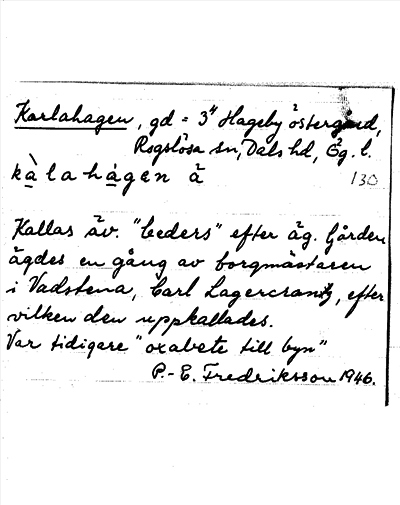 Karlahagen, gd = 3/4 Hageby östergård,
Rogslösa sn, Dals hd, Ög. l.
kà̱lahá̱gen ä̀
130
Kallas äv. "Ceders" efter äg. Gården
ägdes en gång av borgmästaren
i Vadstena, Carl Lagercrantz, efter
vilken den uppkallades.
Var tidigare "oxabete till byn"
P.-E. Fredriksson 1946.